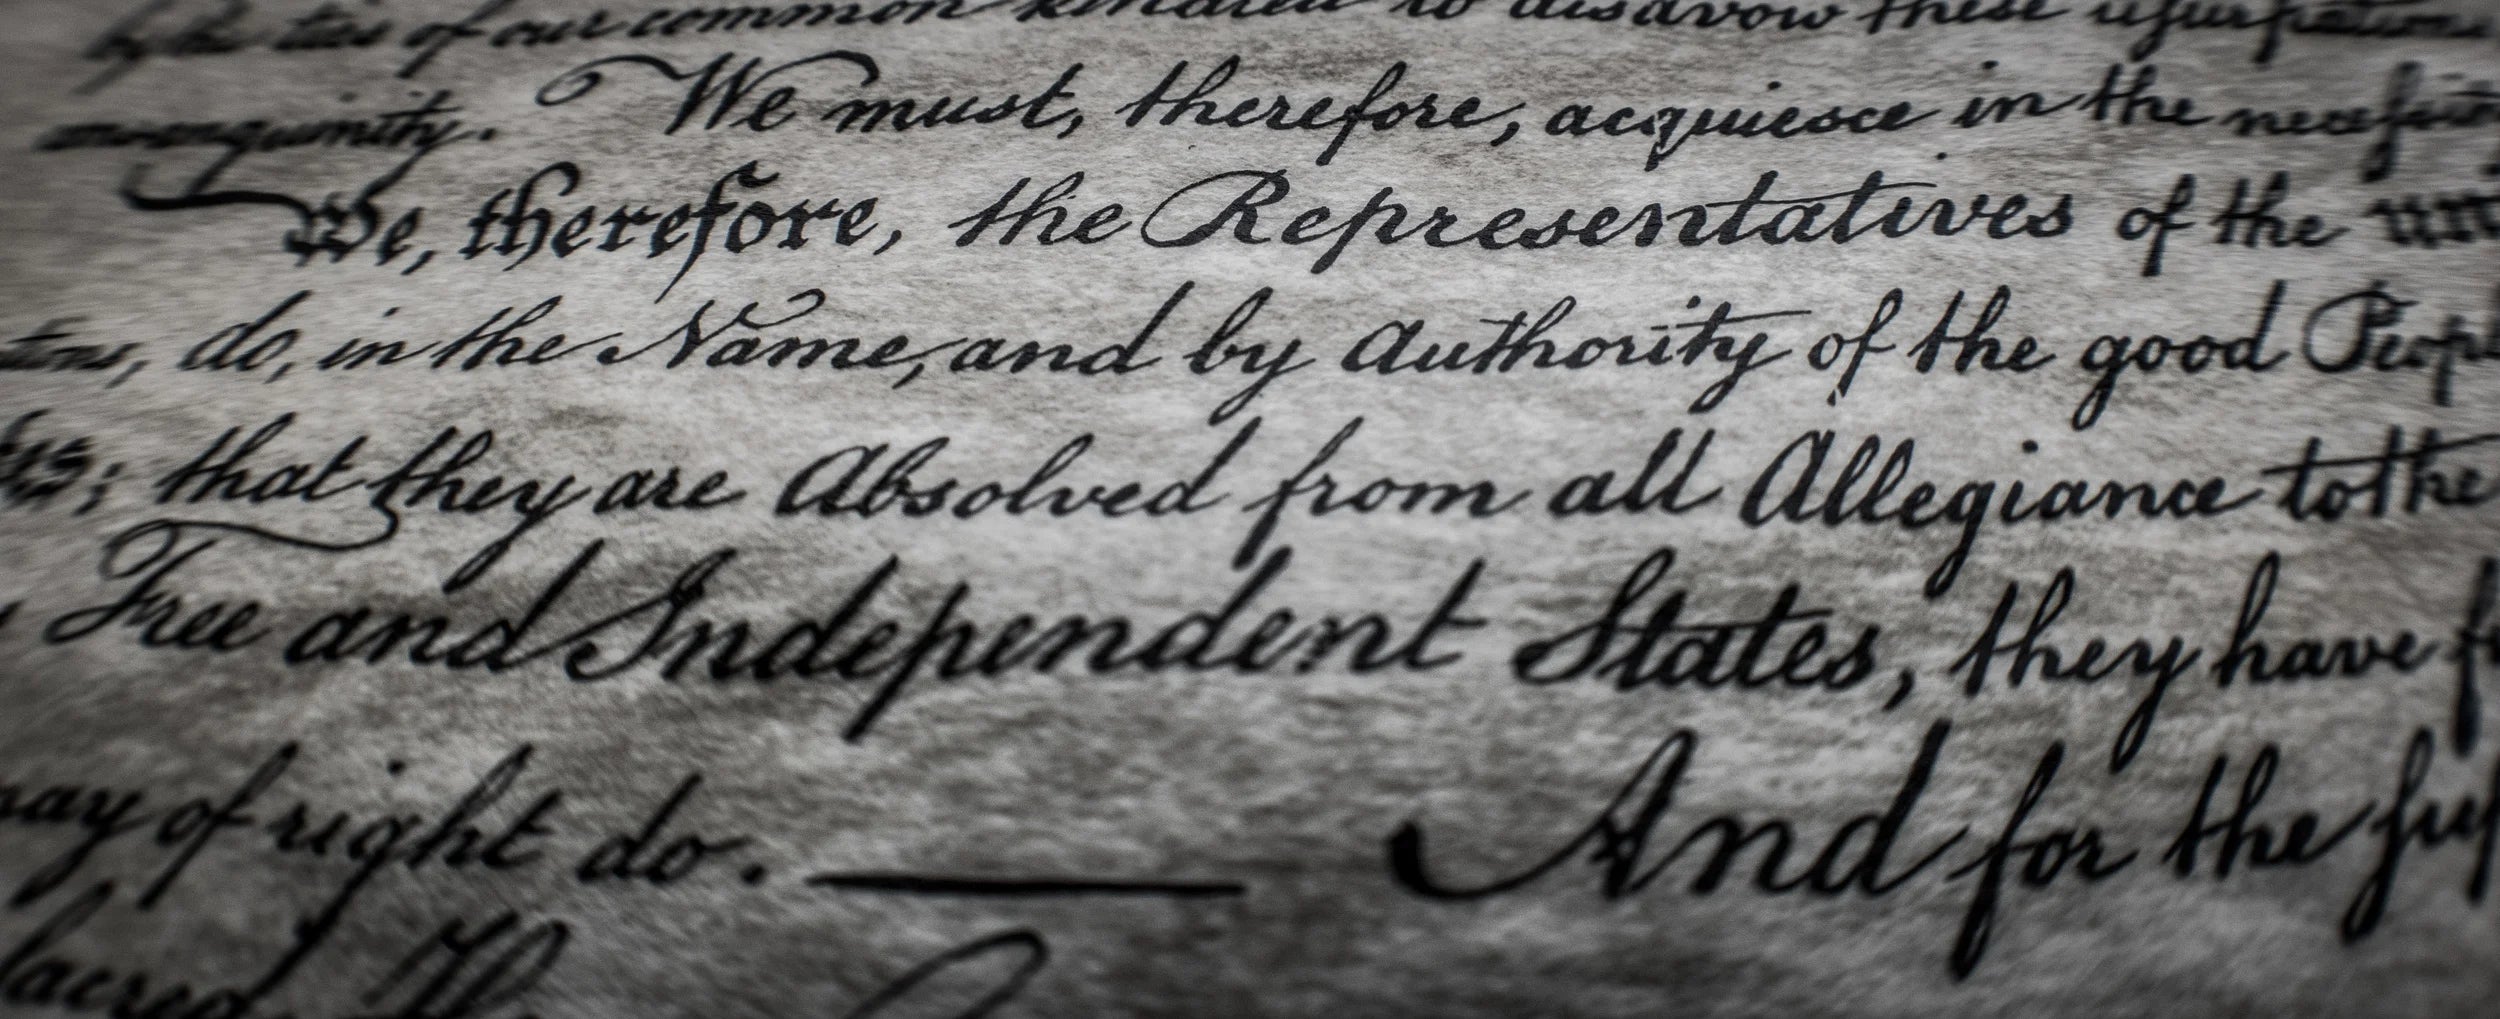 by the ties of our common kindred to disavow these usurpations
We must, therefore, acquiesce in the necessity
We, therefore, the Representatives of the
do, in the Name, and by Authority of the good Peopl
that they are Absolved from all Allegiance to the
Free and Independent States, they have
may of right do. — And for the
sacred H